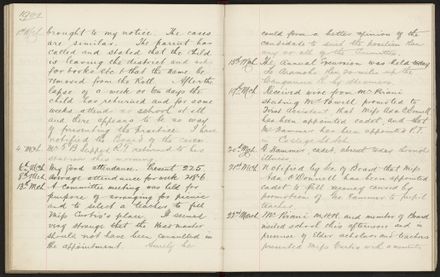 1900
1st Mch brought to my notice. The cases
are similar. The parent has
called and stated that the child
is leaving the district and asks
for books etc & that the name be
removed from the Roll. After the
lapse of a week or ten days the
child has returned and for some
weeks attends no school at all
and there appears to be no way
of preventing the practice. I have
notified the Board of the cases
2nd Mch Mr
P.T. returned to his
duties this morning
6th Mch Very good attendance. Present 225
9th Mch Average attendance for week
13th Mch A Committee meeting was held for
purpose of arranging for picnic
and to select a teacher to fill
Miss Curtis's place. It seemed
very strange that the Headmaster
should not have been consulted in
the appointment. Surely he
could form a better opinion of the
candidate to suit the position than
any or all of the Committee.
15th Mch The Annual Excursion was held today
to
by Steamer
19th Mch Received wire from Mr Pirani
stating Mr Powell promoted to
First Assistant that Miss Ada O'Donnell
has been appointed cadet and that
Mr Gammer has been appointed P.T.
College St Sch.
20th Mch G. Gammer cadet absent today through
illness
21st Mch Notified by Sec of Board that Miss
Ada O'Donnell has been appointed
cadet to fill vacancy caused by
promotion of Mr Gammer to pupil
teacher
23rd March Mr Pirani M.H.R. and member of Board
visited school this afternoon and in
presence of other scholars and teachers
presented Miss Curtis with a